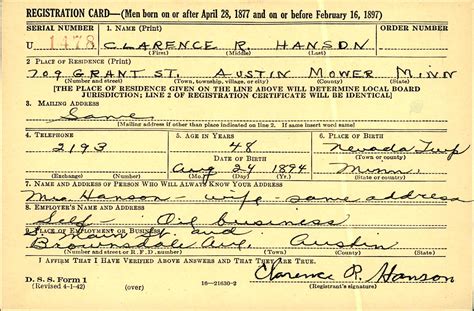 REGISTRATION CARD—(Men born on or after April 28, 1877 and on or before February 16, 1897)
SERIAL NUMBER 1. NAME (Print) ORDER NUMBER
U 1478 CLARENCE R. HANSON
(First) (Middle) (Last)
2. PLACE OF RESIDENCE (Print)
709 GRANT ST. AUSTIN MOWER MINN
(Number and street) (Town, township, village, or city) (County) (State)
[THE PLACE OF RESIDENCE GIVEN ON THE LINE ABOVE WILL DETERMINE LOCAL BOARD
JURISDICTION; LINE 2 OF REGISTRATION CERTIFICATE WILL BE IDENTICAL]
3. MAILING ADDRESS
Same
[Mailing address if other than place indicated on line 2. If same insert word same]
4. TELEPHONE 5. AGE IN YEARS 6. PLACE OF BIRTH
2193 48 Nevada Twp
DATE OF BIRTH (Town or county)
Aug 24 1894 Minn.
(Exchange) (Number) (Mo.) (Day) (Yr.) (State or country)
7. NAME AND ADDRESS OF PERSON WHO WILL ALWAYS KNOW YOUR ADDRESS
Mrs Hanson - wife - same address
8. EMPLOYER'S NAME AND ADDRESS
Self - Oil business
9. PLACE OF EMPLOYMENT OR BUSINESS
Main St. and
Brownsdale Ave. Austin
(Number and street or R. F. D. number) (Town) (County) (State)
I AFFIRM THAT I HAVE VERIFIED ABOVE ANSWERS AND THAT THEY ARE TRUE.
Clarence R. Hanson
D. S. S. Form 1
(Revised 4-1-42) (over) 16—21630-2 (Registrant's signature)